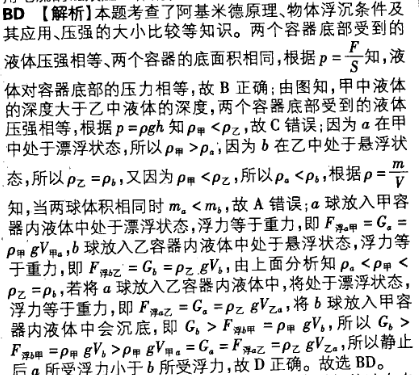 BD 【解析】本题考查了阿基米德原理、物体浮沉条件及
其应用、压强的大小比较等知识。两个容器底部受到的
液体压强相等、两个容器的底面积相同,根据 p = F/S 知,液
体对容器底部的压力相等,故 B 正确;由图知,甲中液体
的深度大于乙中液体的深度,两个容器底部受到的液体
压强相等,根据 p = ρgh 知 ρ甲 < ρ乙,故 C 错误;因为 a 在甲
中处于漂浮状态,所以 ρ甲 > ρa;因为 b 在乙中处于悬浮状
态,所以 ρ乙 = ρb,又因为 ρ甲 < ρ乙,所以 ρa < ρb,根据 ρ = m/V
知,当两球体积相同时 ma < mb,故 A 错误;a 球放入甲容
器内液体中处于漂浮状态,浮力等于重力,即 F浮a甲 = Ga =
ρ甲 gV甲a,b 球放入乙容器内液体中处于悬浮状态,浮力等
于重力,即 F浮b乙 = Gb = ρ乙 gVb,由上面分析知 ρa < ρ甲 <
ρ乙 = ρb,若将 a 球放入乙容器内液体中,将处于漂浮状态,
浮力等于重力,即 F浮a乙 = Ga = ρ乙 gV乙a,将 b 球放入甲容
器内液体中会沉底,即 Gb > F浮b甲 = ρ甲 gVb,所以 Gb >
F浮b甲 = ρ甲 gVb > ρ甲 gV甲a = Ga = F浮a乙 = ρ乙 gV乙a,所以静止
后 a 所受浮力小于 b 所受浮力,故 D 正确。故选 BD。